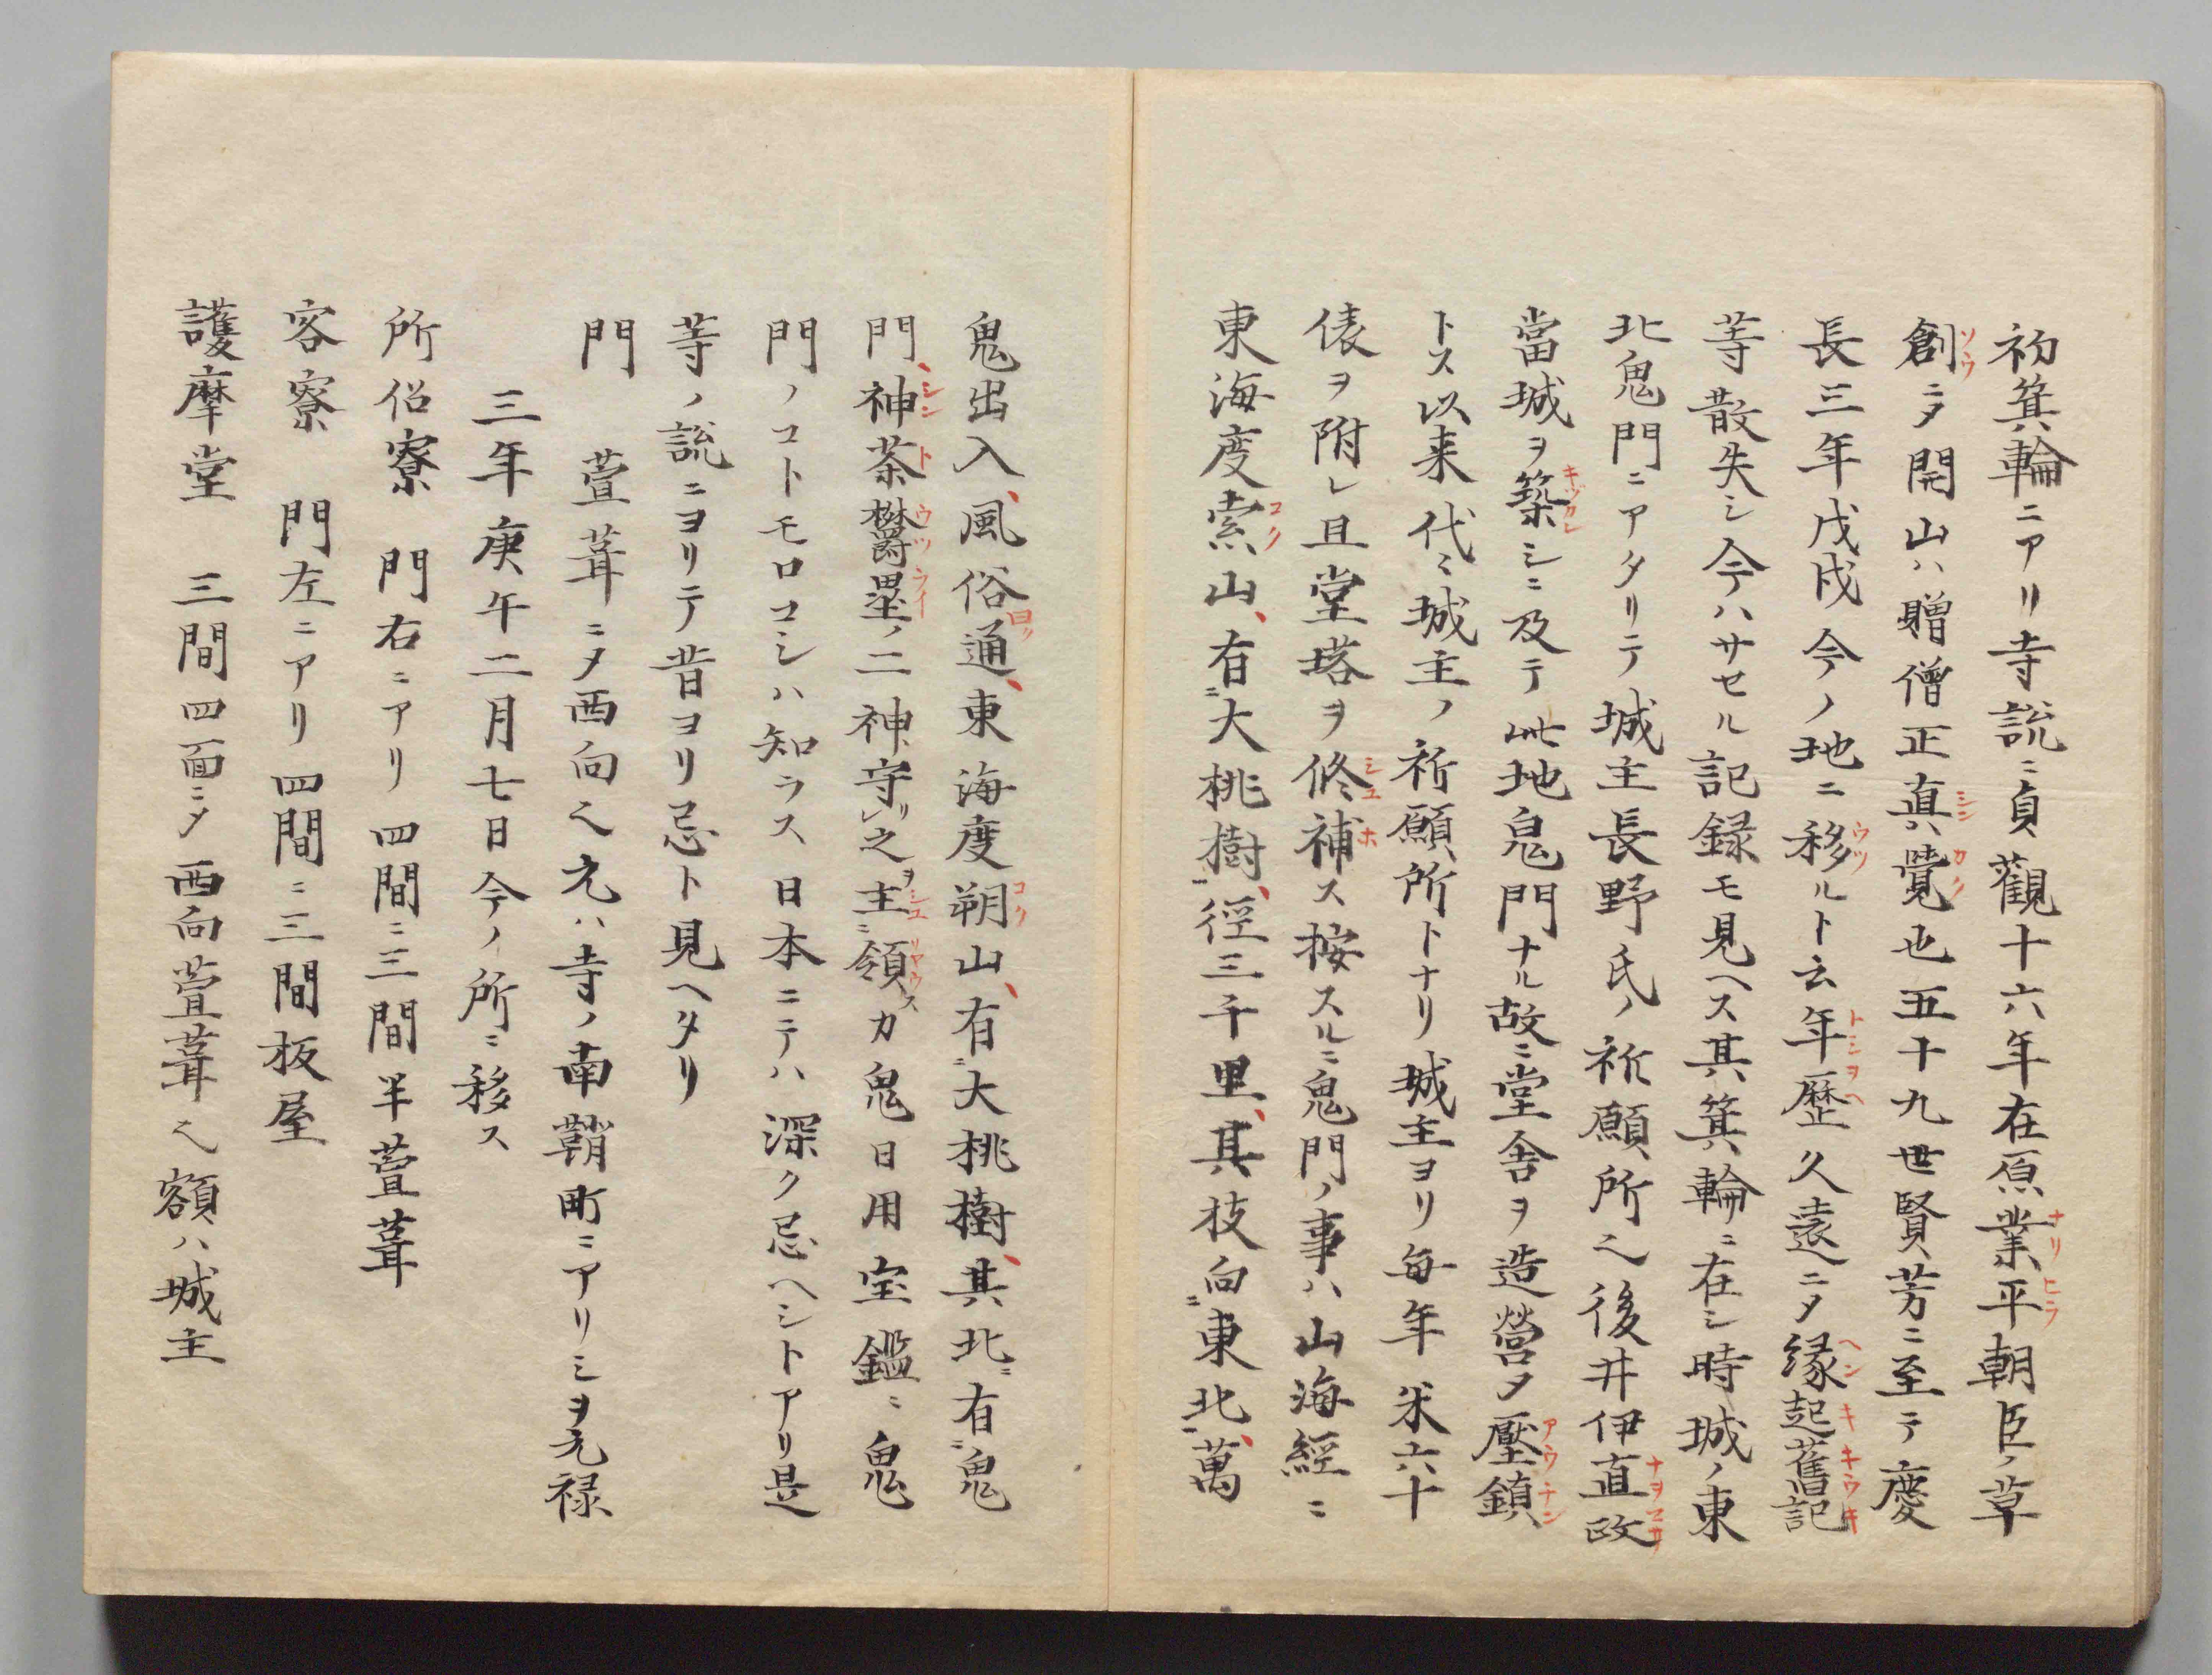 初箕輪ニアリ寺説ニ貞觀十六年在原業平朝臣ノ草
創ニメ開山ハ贈僧正真覺也五十九世賢芳ニ至テ慶
長三年戊戌今ノ地ニ移ルト云年歴久遠ニメ縁起舊記
等散失シ今ハサセル記録モ見ヘス其箕輪ニ在シ時城ノ東
北鬼門ニアタリテ城主長野氏ノ祈願所也後井伊直政
當城ヲ築シニ及テ此地鬼門ナル故ニ堂舎ヲ造營メ壓鎮
トス以来代々城主ノ祈願所トナリ城主ヨリ毎年米六十
俵ヲ附レ且堂塔ヲ修補ス按スルニ鬼門ノ事ハ山海經ニ
東海度索山、有ニ大桃樹一、徑三千里、其枝向ニ東北一、萬
鬼出入、風俗通曰ク、東海度朔山、有ニ大桃樹、其北ニ有ニ鬼
門、神荼欝壘ノ二神守リレ之ヲ主ニ領スカ鬼日用宝鑑ニ鬼
門ノコトモロコシハ知ラス日本ニテハ深ク忌ヘシトアリ是
等ノ説ニヨリテ昔ヨリ忌ト見ヘタリ
門　萱葺ニメ西向也元ハ寺ノ南鞘町ニアリシヲ元禄
三年庚午二月七日今ノ所ニ移ス
所侶寮　門右ニアリ四間ニ三間半萱葺
客寮　門左ニアリ四間ニ三間板屋
護摩堂　三間四面ニメ西向萱葺也額ハ城主